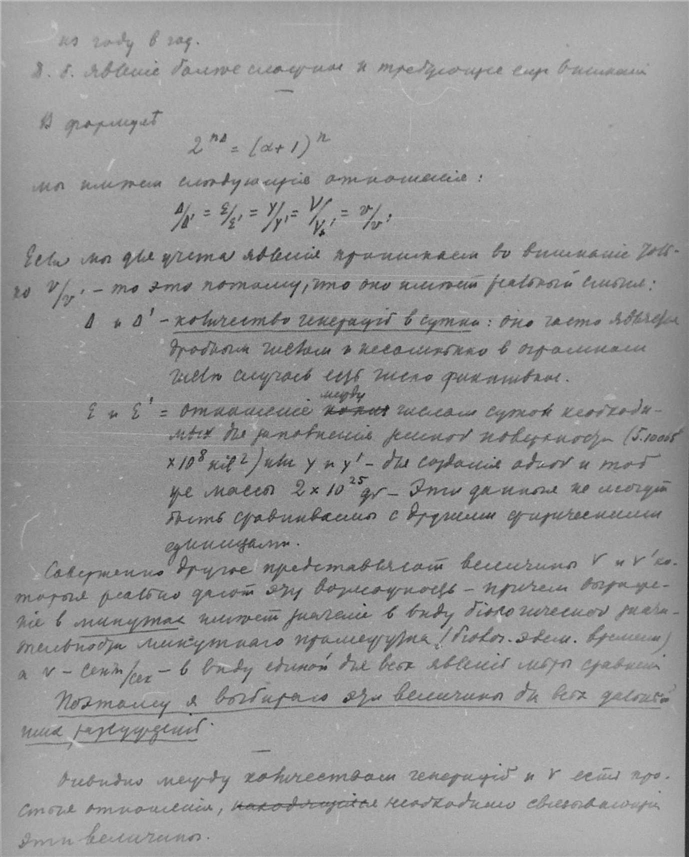 из году в год.
М. б. явленіе болѣе сложное и требующее еще вниманія
В формулѣ
2^{nΔ} = (α+1)^n
мы имѣем слѣдующія отношенія:
Δ/Δ' = ε/ε' = γ/γ' = V/V' = v/v'
Если мы для учета явленія принимаем во вниманіе толь-
ко V/v' – то это потому, что оно имѣет реальный смысл:
Δ и Δ' – количество генерацій в сутки: оно часто является
дробным числом и несомнѣнно в огромном
числѣ случаев есть число фиктивное.
ε и ε' = отношеніе между числом суток необходи-
мых для заполненія земной поверхности (5.10065
×10^8 kil^2) или γ и γ' – для созданія одной и той
же массы 2×10^25 gr – Эти данныя не могут
быть сравниваемы с другими физическими
единицами.
Совершенно другое представляют величины v и v' ко-
торыя реально дают эту возможность – причем выраже-
ніе в минутах имѣет значеніе в виду біологической значи-
тельности минутнаго промежутка (біолог. элем. времени)
а v – сент/сек – в виду единой для всѣх явленій мѣры сравненія
Поэтому я выбираю эти величины для всѣх дальнѣй
ших разсужденій.
Очевидно между количеством генерацій и v есть про-
стыя отношенія, необходимо связывающія
эти величины.